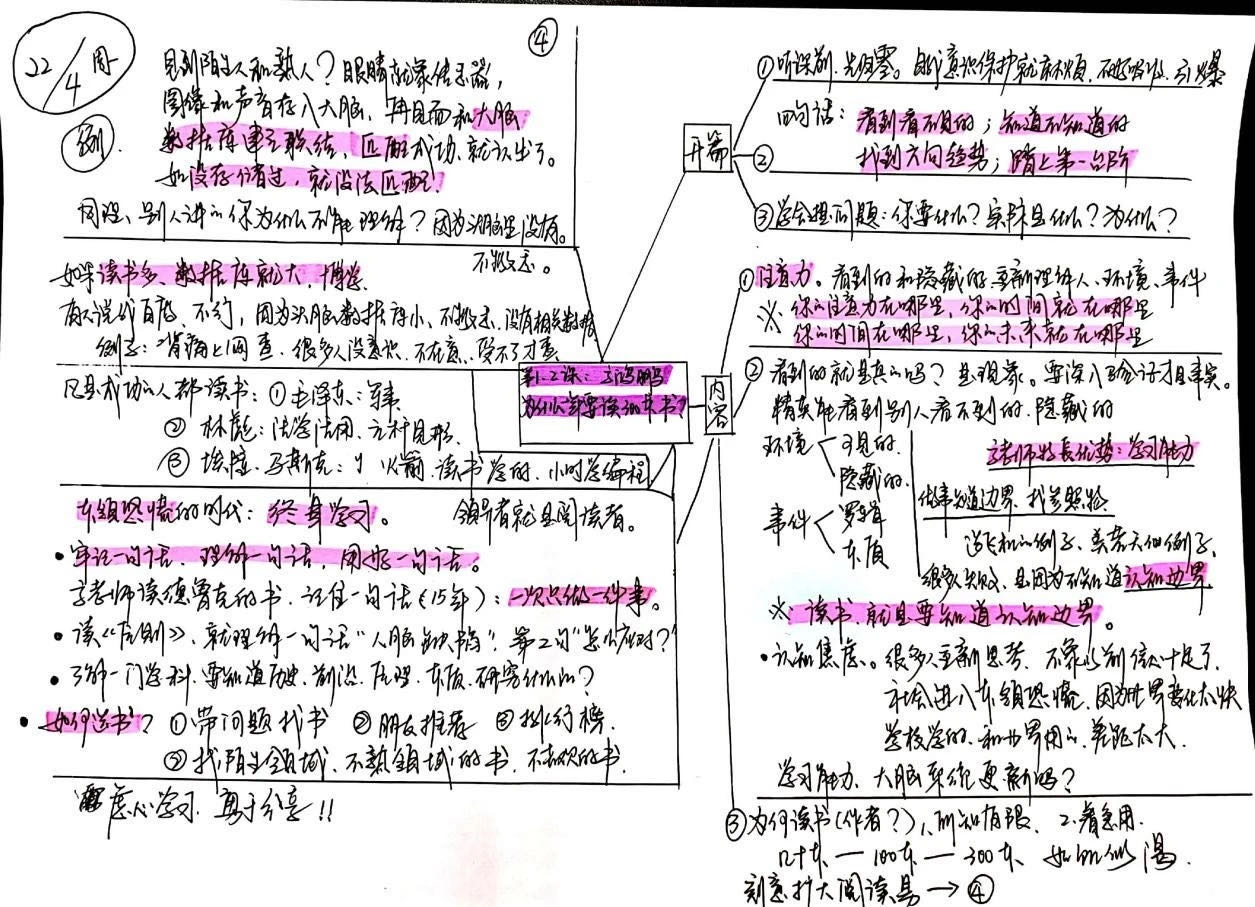 22/4 周一
④
见到陌生人和熟人？眼睛就象传感器，
图像和声音存入大脑，再见面和大脑
数据库建立联结，匹配成功，就认出了。
如没存储过，就没法匹配。
例
同理，别人讲的你为什么不能理解？因为头脑里没有。
不敏感。
如果读书多，数据库就大，博学
有人说我自卑，不行，因为头脑数据库小，不敏感，没有相关数据
例子：背痛上网查，很多人没意识，不在意，受不了才查
凡是成功的人都读书：① 毛泽东：军事
② 林彪：
③ 埃隆.马斯克：火箭，读书学的，小时学编程
本领恐慌的时代：终身学习。 领导者就是阅读者。
• 牢记一句话，理解一句话，用好一句话。
老师读德鲁克的书，记住一句话（15年）：一次只做一件事。
• 读《原则》，就理解一句话“人脑缺陷”，第2句“怎么应对？”
• 了解一门学科，要知道历史，前沿，原理，本质，研究什么的？
• 如何选书？ ① 带问题找书 ② 朋友推荐 ③ 排行榜.
找陌生领域，不熟领域的书，不喜欢的书.
虚心学习，勇于分享!!
第1.2课：
为什么需要读这本书？
开篇
① 听课前，先归零。自我意识保护就麻烦，不吸收，引爆
②
四句话：看到看不见的；知道不知道的
找到方向趋势；踏上第一台阶
③ 学会提问题：你要什么？实际是什么？为什么？
内容
① 注意力。看到的和隐藏的，重新理解人、环境、事件
※ 你的注意力在哪里，你的时间就在哪里
你的时间在哪里，你的未来就在哪里
② 看到的就是真的吗？是现象。要深入验证才是事实。
精英能看到别人看不到的，隐藏的
环境 可见的.
隐藏的.
事件 逻辑
本质
老师特长优势：学习能力
做事知道边界，找参照
造飞机的例子，
很多失败，是因为不知道认知边界
※ 读书，就是要知道认知边界。
• 认知焦虑。很多人重新思考，不象以前信心十足了.
社会进入本领恐慌，因为世界变化太快
学校学的，和世界用的，差距太大.
学习能力，大脑系统更新吗？
③ 为何读书（作者？）1.所知有限、2.着急用.
几十本 — 100本 — 300本、如饥似渴.
刻意扩大阅读量 → ④